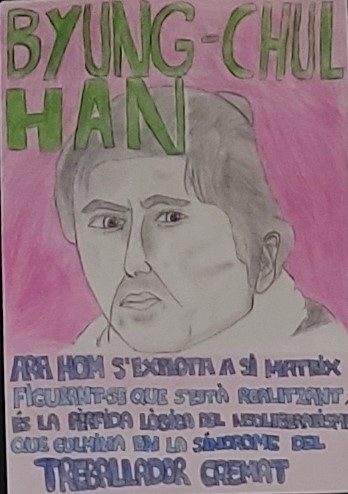 BYUNG-CHUL
HAN
ARA HOM S'EXPLOTA A SÍ MATEIX
FIGURANT-SE QUE S'ESTÀ REALITZANT,
ÉS LA PÈRFIDA LÒGICA DEL NEOLIBERALISME
QUE CULMINA EN LA SÍNDROME DEL
TREBALLADOR CREMAT